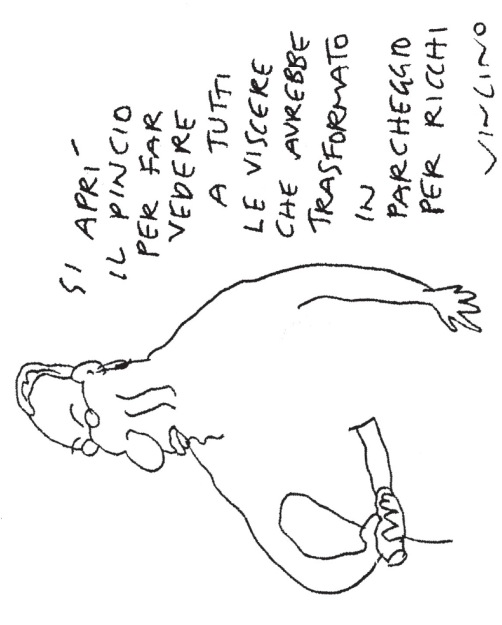 SI APRÌ
IL PINCIO
PER FAR
VEDERE
A TUTTI
LE VISCERE
CHE AVREBBE
TRASFORMATO
IN
PARCHEGGIO
PER RICCHI
VINCINO